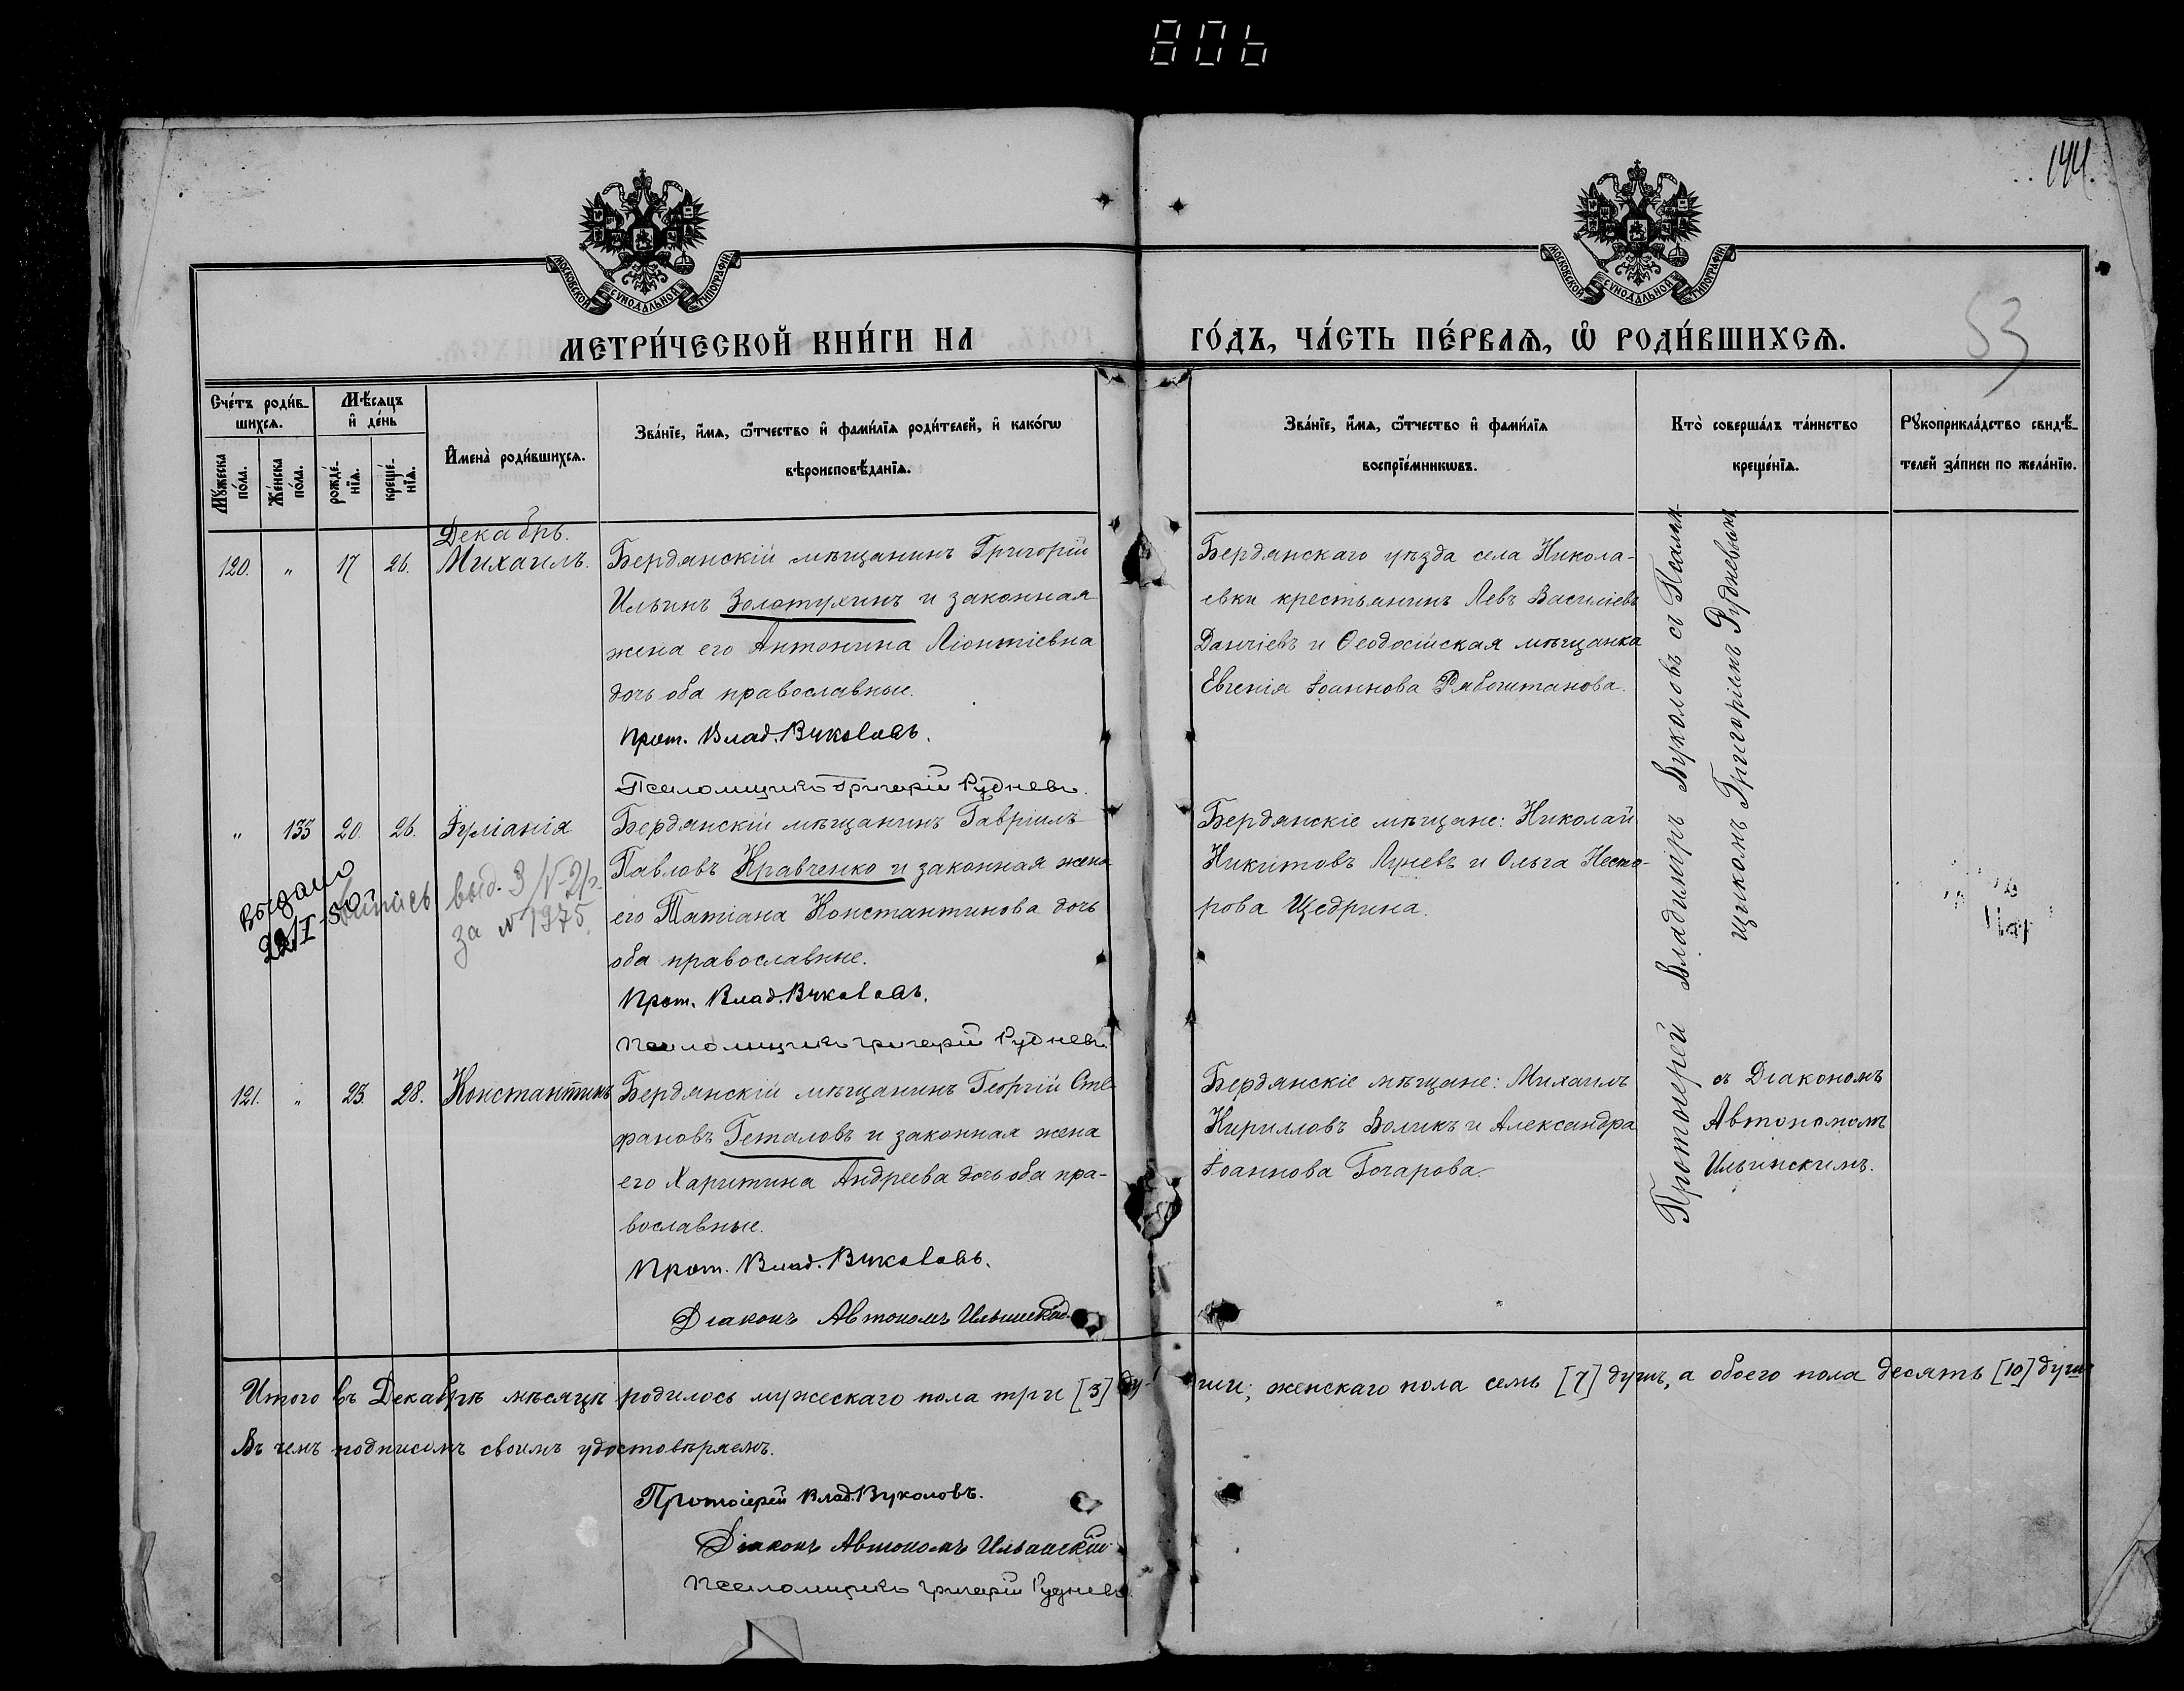 806
144.
53
МОСКОВСКОЙ СУНОДАЛЬНОЙ ТИПОГРАФІИ.
МОСКОВСКОЙ СУНОДАЛЬНОЙ ТИПОГРАФІИ.
МЕТРИ́ЧЕСКОЙ КНИ́ГИ НА ГО́ДЪ, ЧА́СТЬ ПЕ́РВАѦ, Ѡ҆ РОДИ́ВШИХСѦ.
Сче́тъ роди́в-
шихсѧ.
Мѣ́сѧцъ
и҆ де́нь
Мꙋ́жеска
по́ла.
Же́нска
по́ла.
рожде́-
нїѧ.
креще́-
нїѧ.
И҆мена̀ роди́вшихсѧ.
Зва́нїе, и҆́мѧ, ѻ҆́тчество и҆ фами́лїѧ роди́телей, и҆ како́гѡ
вѣроисповѣ́данїѧ.
Зва́нїе, и҆́мѧ, ѻ҆́тчество и҆ фами́лїѧ
воспрїе́мникѡвъ.
Кто̀ соверша́лъ та́инство
креще́нїѧ.
Рꙋкоприкла́дство свидѣ́-
телей за́писи по жела́нїю.
Декабрь.
120. " 17 26. Михаилъ.
Бердянскій мѣщанинъ Григорій
Ильинъ Золотухинъ и законная
жена его Антонина Ліонтіевна
дочь оба православные.
Прот. Влад. Вуколовъ.
Псаломщикъ Григорій Рудневъ.
Бердянскаго уѣзда села Никола-
евки крестьянинъ Левъ Василіевъ
Данчіевъ и Ѳеодосійская мѣщанка
Евгенія Іоаннова Рябоштанова.
Протоіерей Владиміръ Вуколовъ съ Псалом
щикомъ Григоріемъ Рудневымъ
" 133 20. 26. Іуліанія
Бердянскій мѣщанинъ Гавріилъ
Павловъ Кравченко и законная жена
его Татіана Константинова дочь
оба православные.
Прот. Влад. Вуколовъ.
Псаломщикъ Григорій Рудневъ.
Бердянскіе мѣщане: Николай
Никитовъ Луневъ и Ольга Несто-
рова Щедрина.
Выдано
22/I-50
выпись выд. 3/V-21г.
за № 1975.
121. " 23. 28. Константинъ
Бердянскій мѣщанинъ Георгій Сте-
фановъ Геталовъ и законная жена
его Харитина Андреева дочь оба пра-
вославные.
Прот. Влад. Вуколовъ.
Діаконъ Автономъ Ильинскій
Бердянскіе мѣщане: Михаилъ
Кирилловъ Воликъ и Александра
Іоаннова Гочарова.
съ Діакономъ
Автономомъ
Ильинскимъ.
Итого въ Декабрѣ мѣсяцѣ родилось мужескаго пола три [3] ду-ши; женскаго пола семь [7] душъ, а обоего пола десять [10] душъ
Въ чемъ подписомъ своимъ удостовѣряемъ.
Протоіерей Влад. Вуколовъ.
Діаконъ Автономъ Ильинскій
Псаломщикъ Григорій Рудневъ.